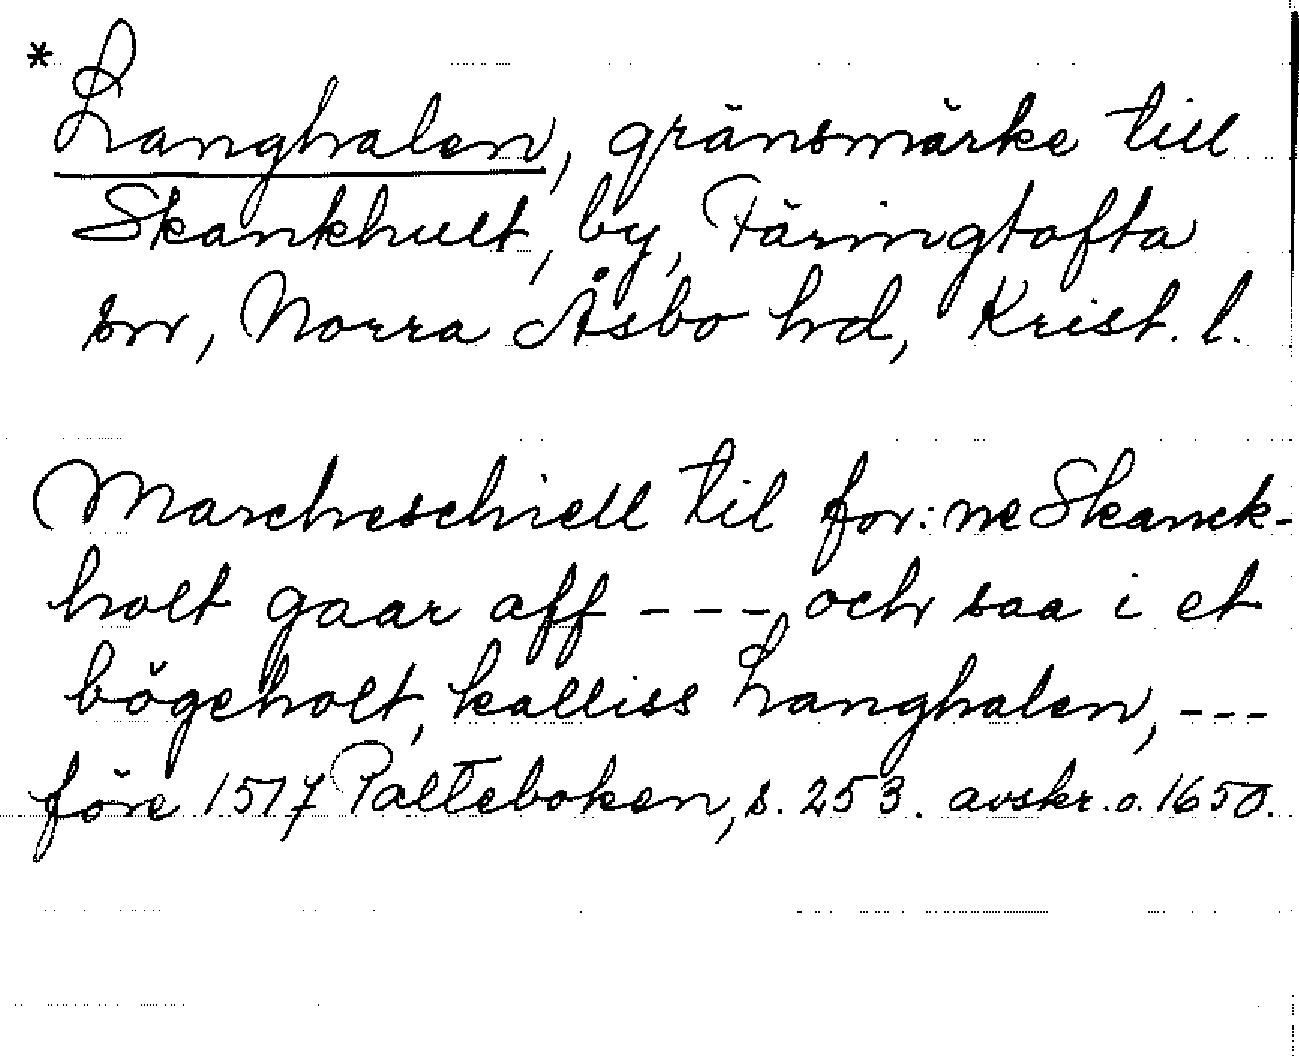 *Langhalen, gränsmärke till
Skankhult, by, Färingtofta
sn, Norra Åsbo hd, Krist. l.
Marcheschiell til for:ne Skanck-
holt gaar aff --- och saa i et
bögeholt, kalliss Langhalen, ---
före 1517 Palteboken, s. 253. avskr. o. 1650.